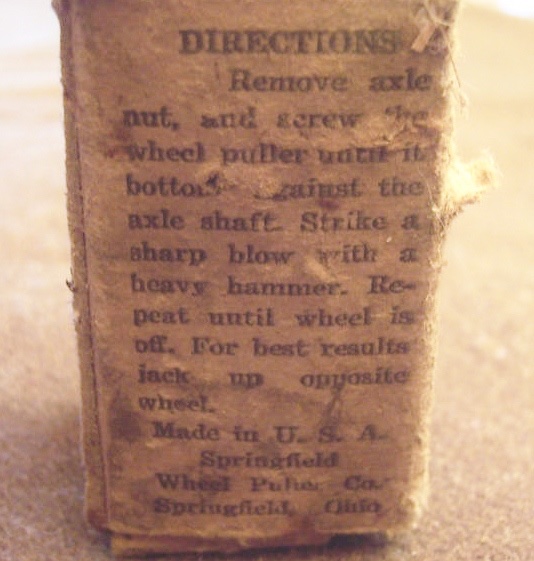 DIRECTIONS
Remove axle
nut, and screw the
wheel puller until it
bottoms against the
axle shaft. Strike a
sharp blow with a
heavy hammer. Re-
peat until wheel is
off. For best results
jack up opposite
wheel.
Made in U. S. A.
Springfield
Wheel Puller Co.
Springfield, Ohio